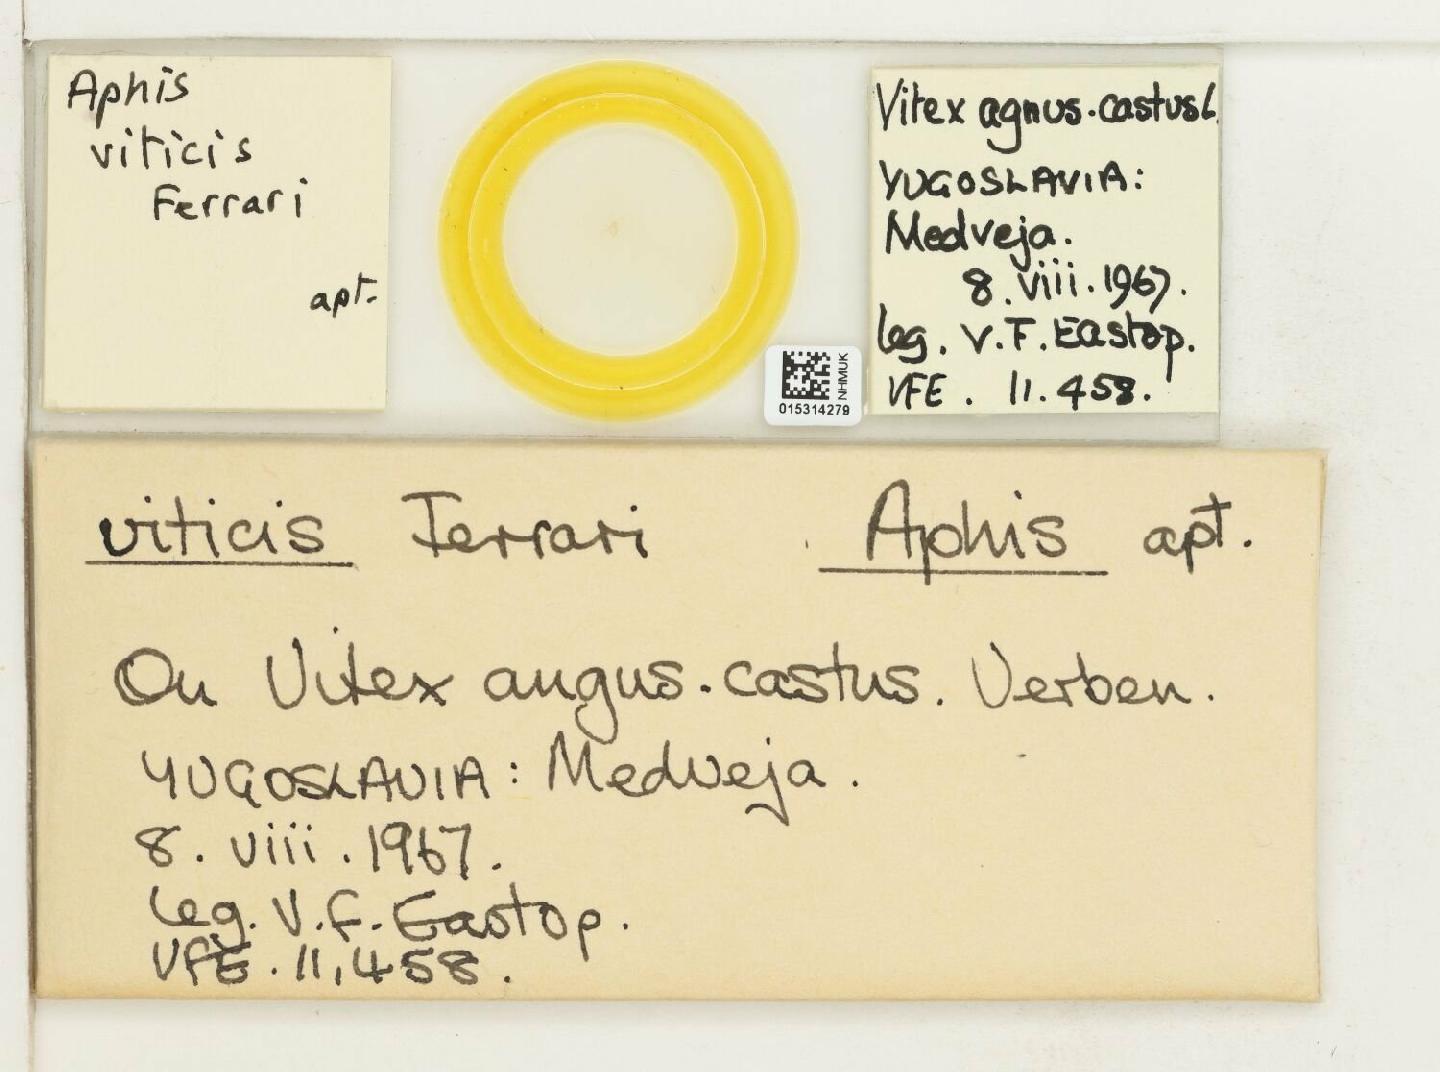 Aphis
viticis
Ferrari
apt.
Vitex agnus-castus L.
YUGOSLAVIA:
Medveja.
8.viii.1967.
leg. V.F. Eastop.
VFE. 11.458.
NHMUK
015314279
viticis Ferrari Aphis apt.
On Vitex angus-castus. Verben.
YUGOSLAVIA: Medveja.
8.viii.1967.
leg. V.F. Eastop.
VFE. 11,458.